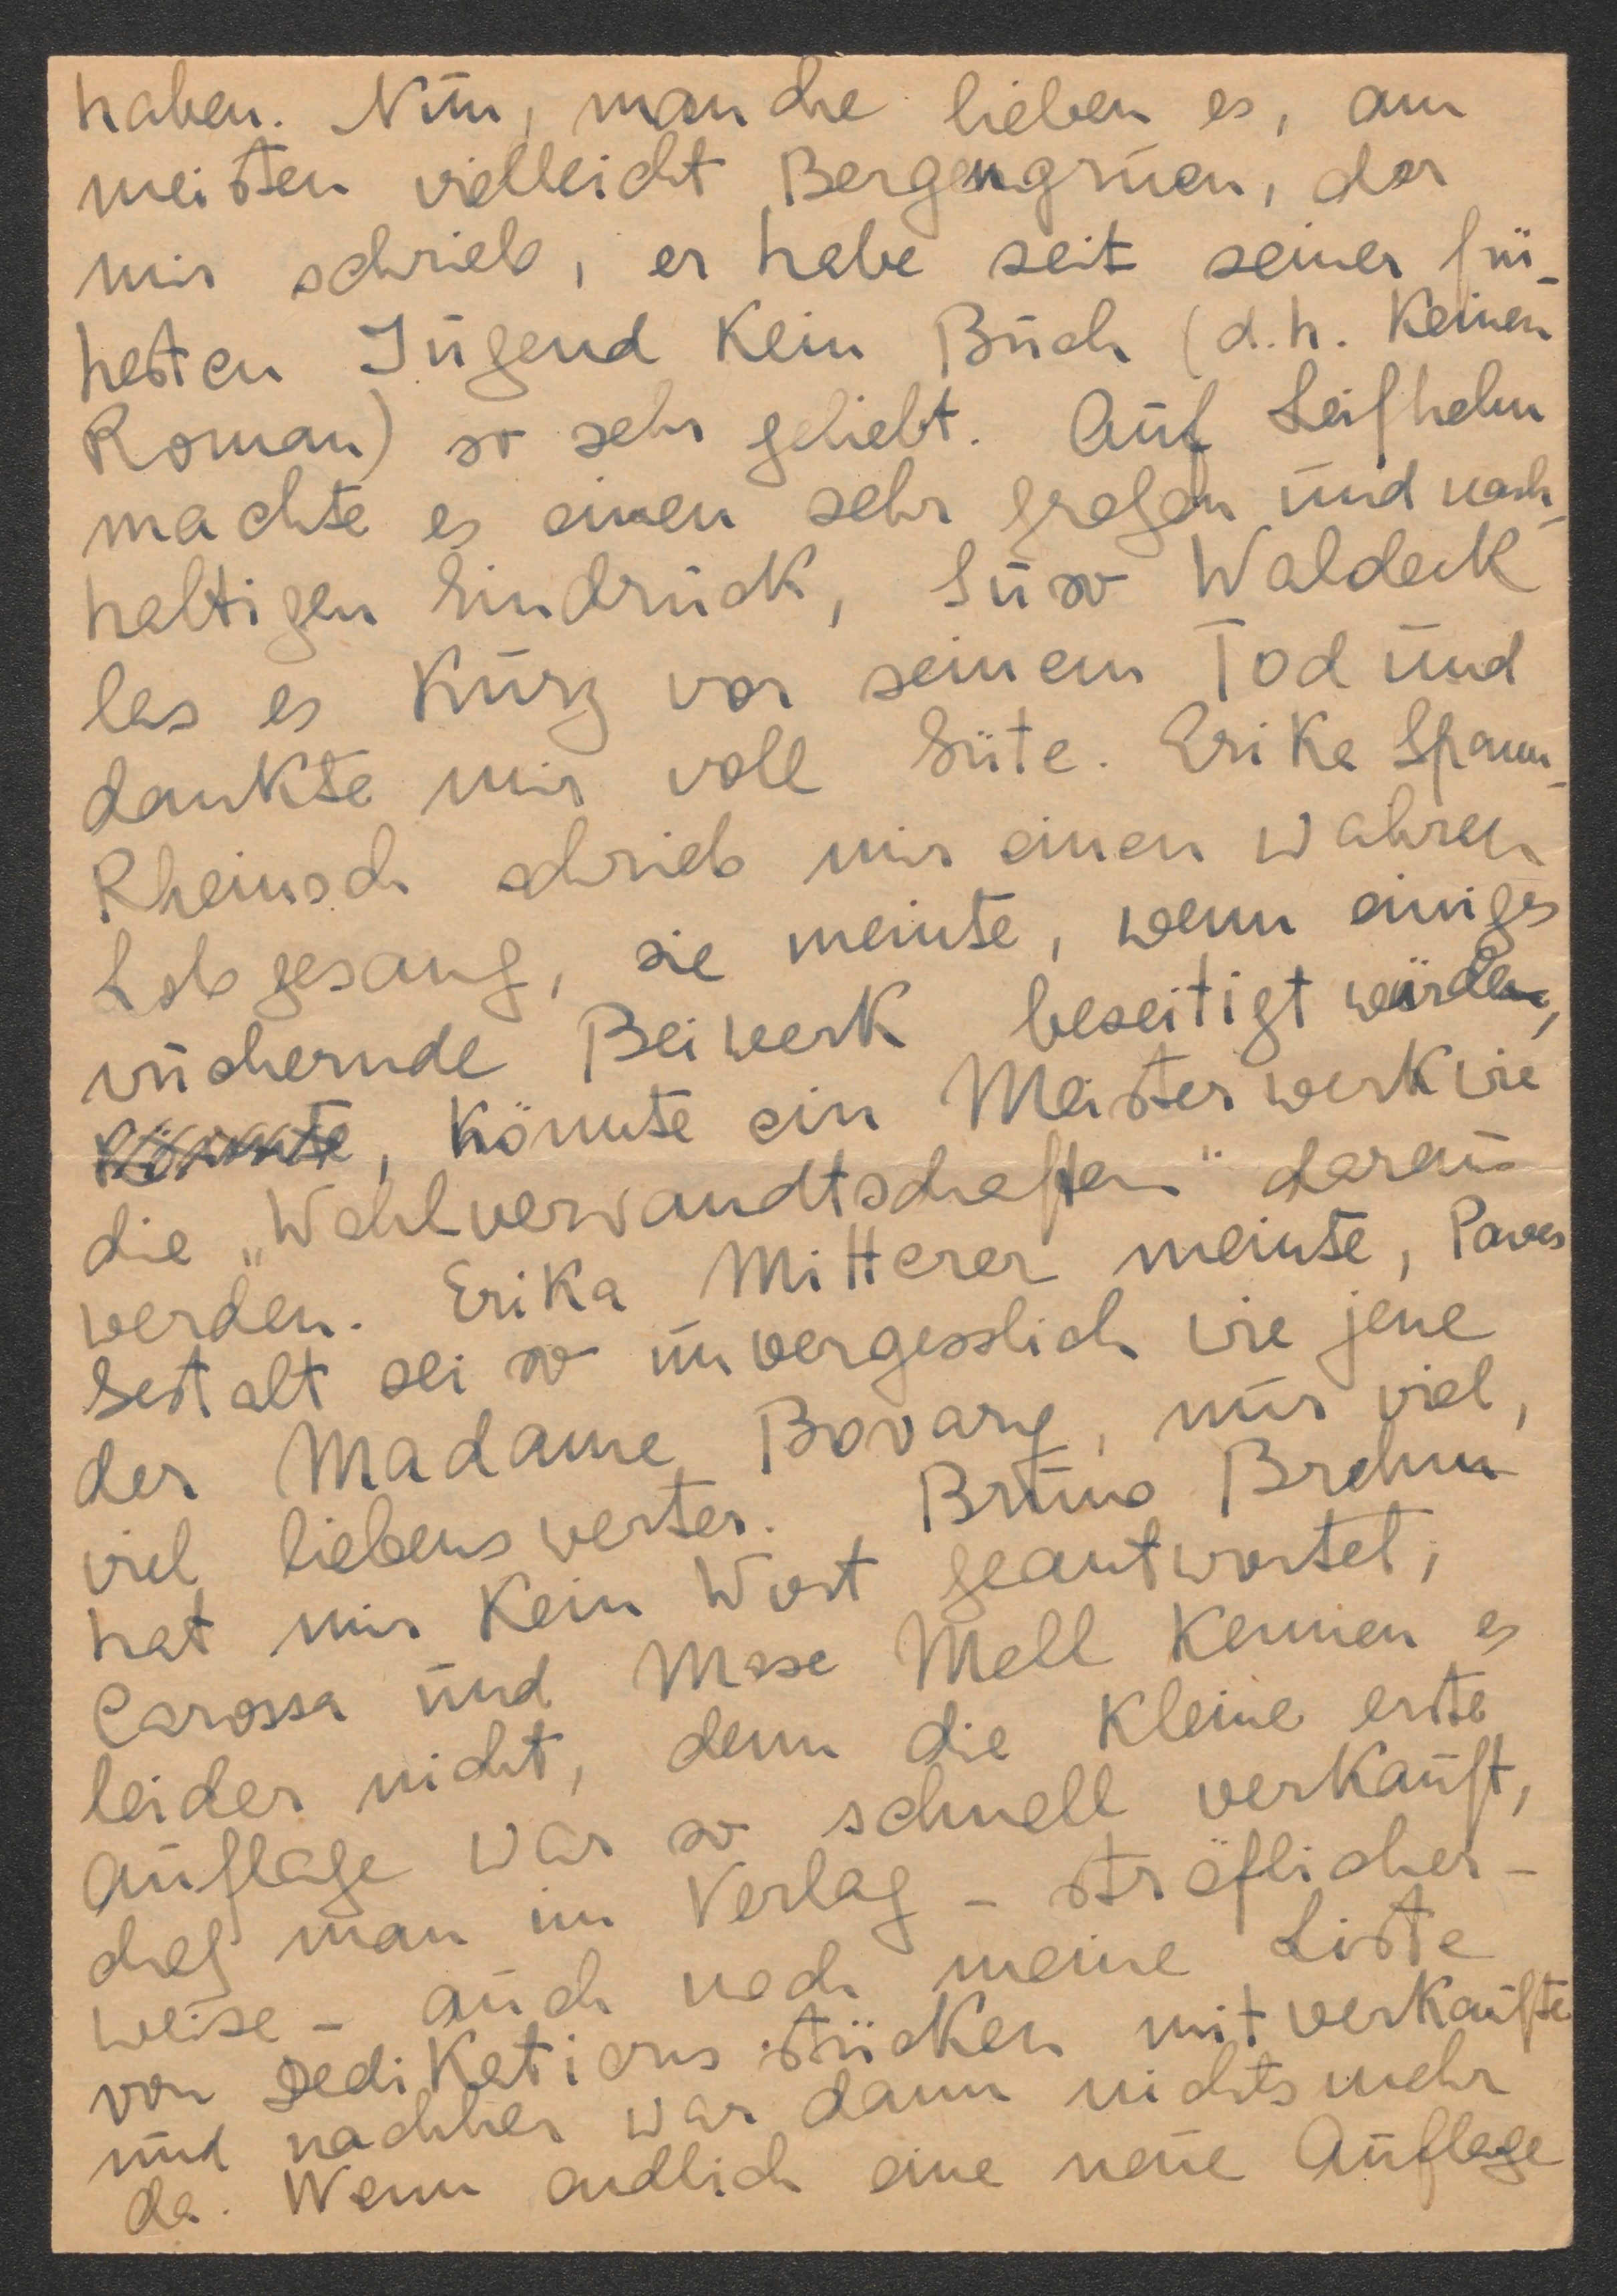 haben. Nun, manche lieben es, am
meisten vielleicht Bergengruen, der
mir schrieb, er habe seit seiner frü-
hesten Jugend kein Buch (d.h. keinen
Roman) so sehr geliebt. Auf Leifhelm
machte es einen sehr großen und nach-
haltigen Eindruck, Suso Waldeck
las es kurz vor seinem Tod und
dankte mir voll Güte. Erika Spann-
Rheinsch schrieb mir einen wahren
Lobgesang, sie meinte, wenn einiges
wuchernde Beiwerk beseitigt würde,
könnte, könnte ein Meisterwerk wie
die „Wahlverwandtschaften" daraus
werden. Erika Mitterer meinte, Paves
Gestalt sei so unvergesslich wie jene
der Madame Bovary, nur viel,
viel liebenswerter. Bruno Brehm
hat mir kein Wort geantwortet;
Carossa und Maxe Mell kennen es
leider nicht, denn die kleine erste
Auflage war so schnell verkauft,
daß man im Verlag – sträflicher-
weise – auch noch meine Liste
von Dedikationsstücken mitverkaufte
und nachher war dann nichts mehr
da. Wenn endlich eine neue Auflage